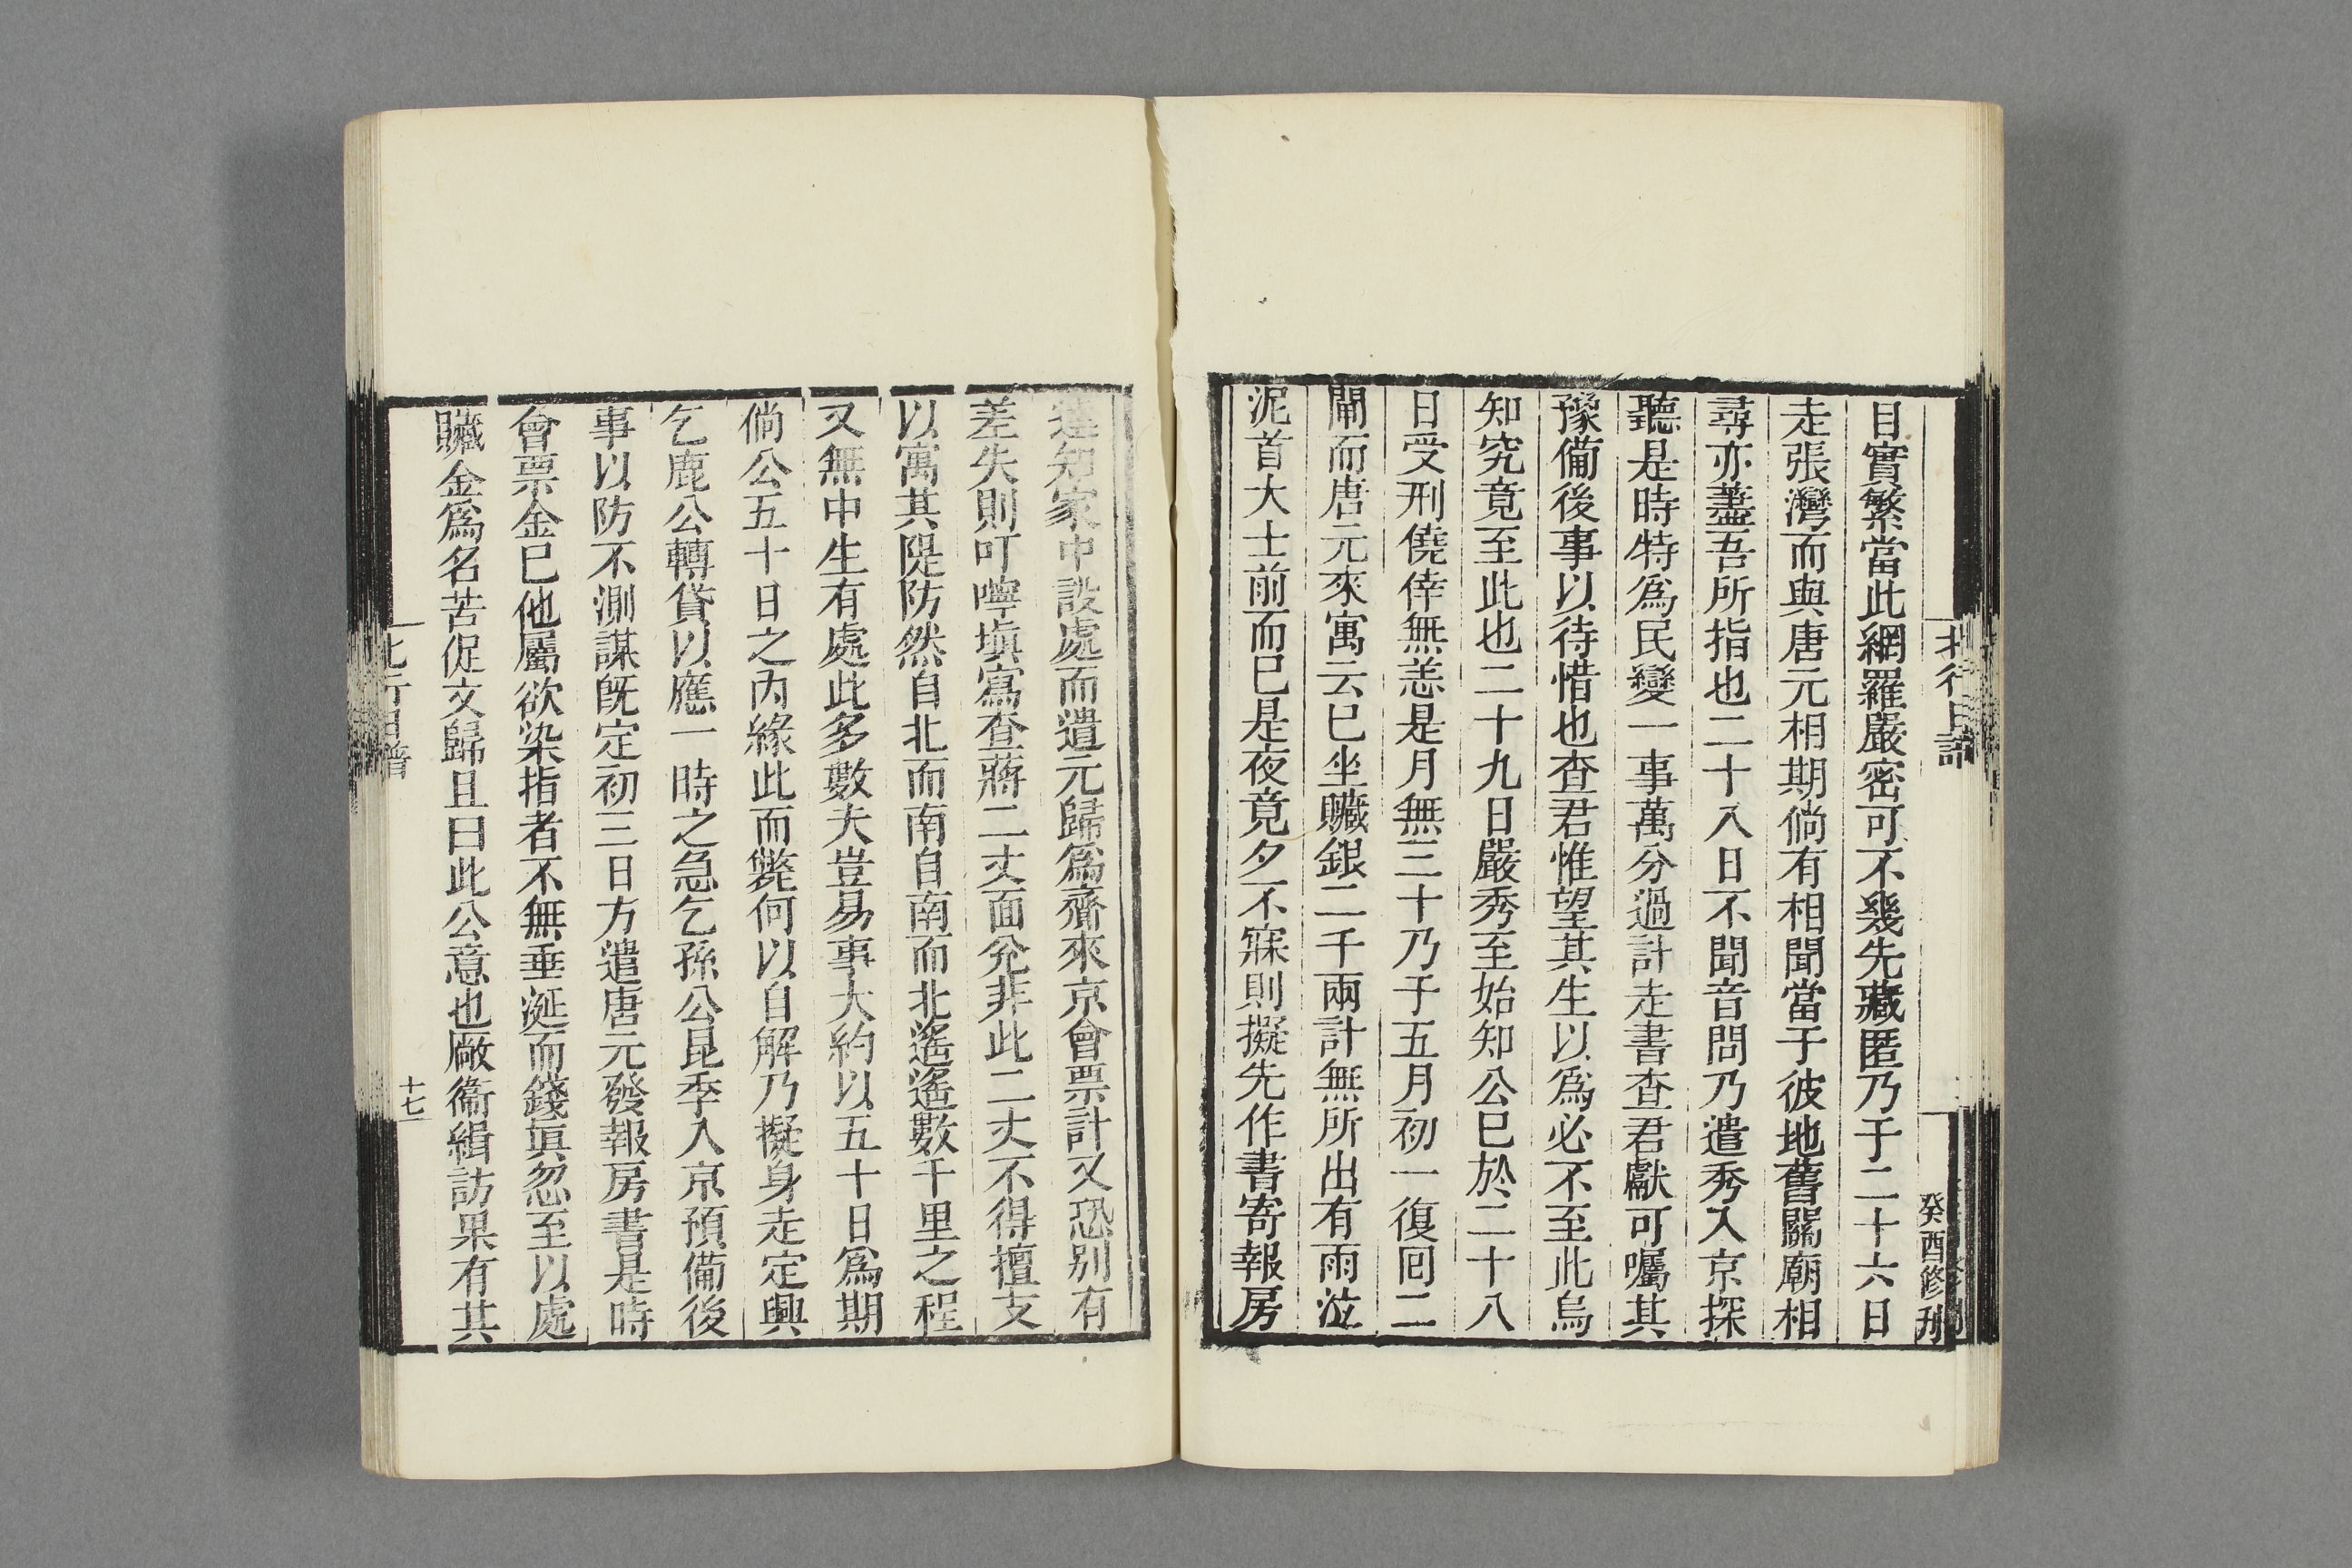 北行日譜
癸酉修刊
目實繁當此網羅嚴密可不幾先藏匿乃于二十六日
走張灣而與唐元相期倘有相聞當于彼地舊關廟相
尋亦蓋吾所指也二十八日不聞音問乃遣秀入京探
聽是時特爲民變一事萬分過計走書查君獻可囑其
豫備後事以待惜也查君惟望其生以爲必不至此烏
知究竟至此也二十九日嚴秀至始知公巳於二十八
日受刑僥倖無恙是月無三十乃于五月初一復回二
閘而唐元來寓云巳坐贓銀二千兩計無所出有雨泣
泥首大士前而巳是夜竟夕不寐則擬先作書寄報房
達知家中設處而遣元歸爲齎來京會票計又恐别有
差失則叮嚀塡寫查蔣二丈面兊非此二丈不得擅支
以寓其隄防然自北而南自南而北遙遙數千里之程
又無中生有處此多數夫豈易事大約以五十日爲期
倘公五十日之內緣此而斃何以自解乃擬身走定興
乞鹿公轉貸以應一時之急乞孫公昆季入京預備後
事以防不測謀旣定初三日方遣唐元發報房書是時
會票金巳他屬欲染指者不無垂涎而錢眞忽至以處
贓金爲名苦促文歸且曰此公意也厰衞緝訪果有其
北行日譜
十七